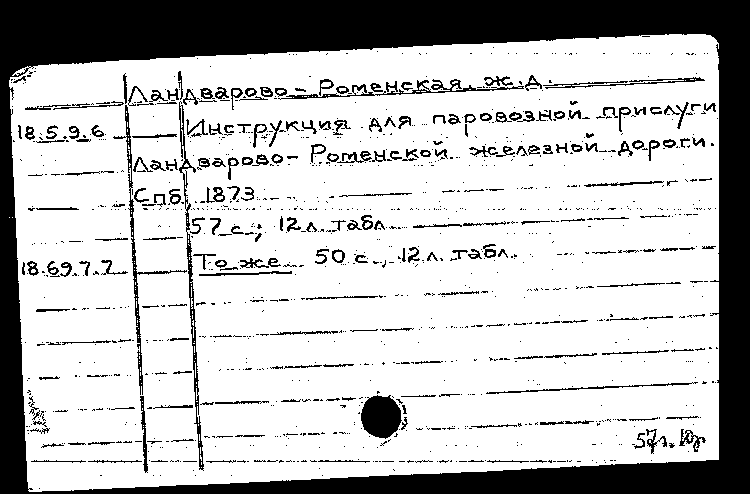 Ландварово-Роменская ж.д.
18.5.9.6 Инструкция для паровозной прислуги
Ландварово-Роменской железной дороги.
Спб, 1873
57 с.; 12 л. табл.
18.69.7.7 То же 50 с., 12 л. табл.